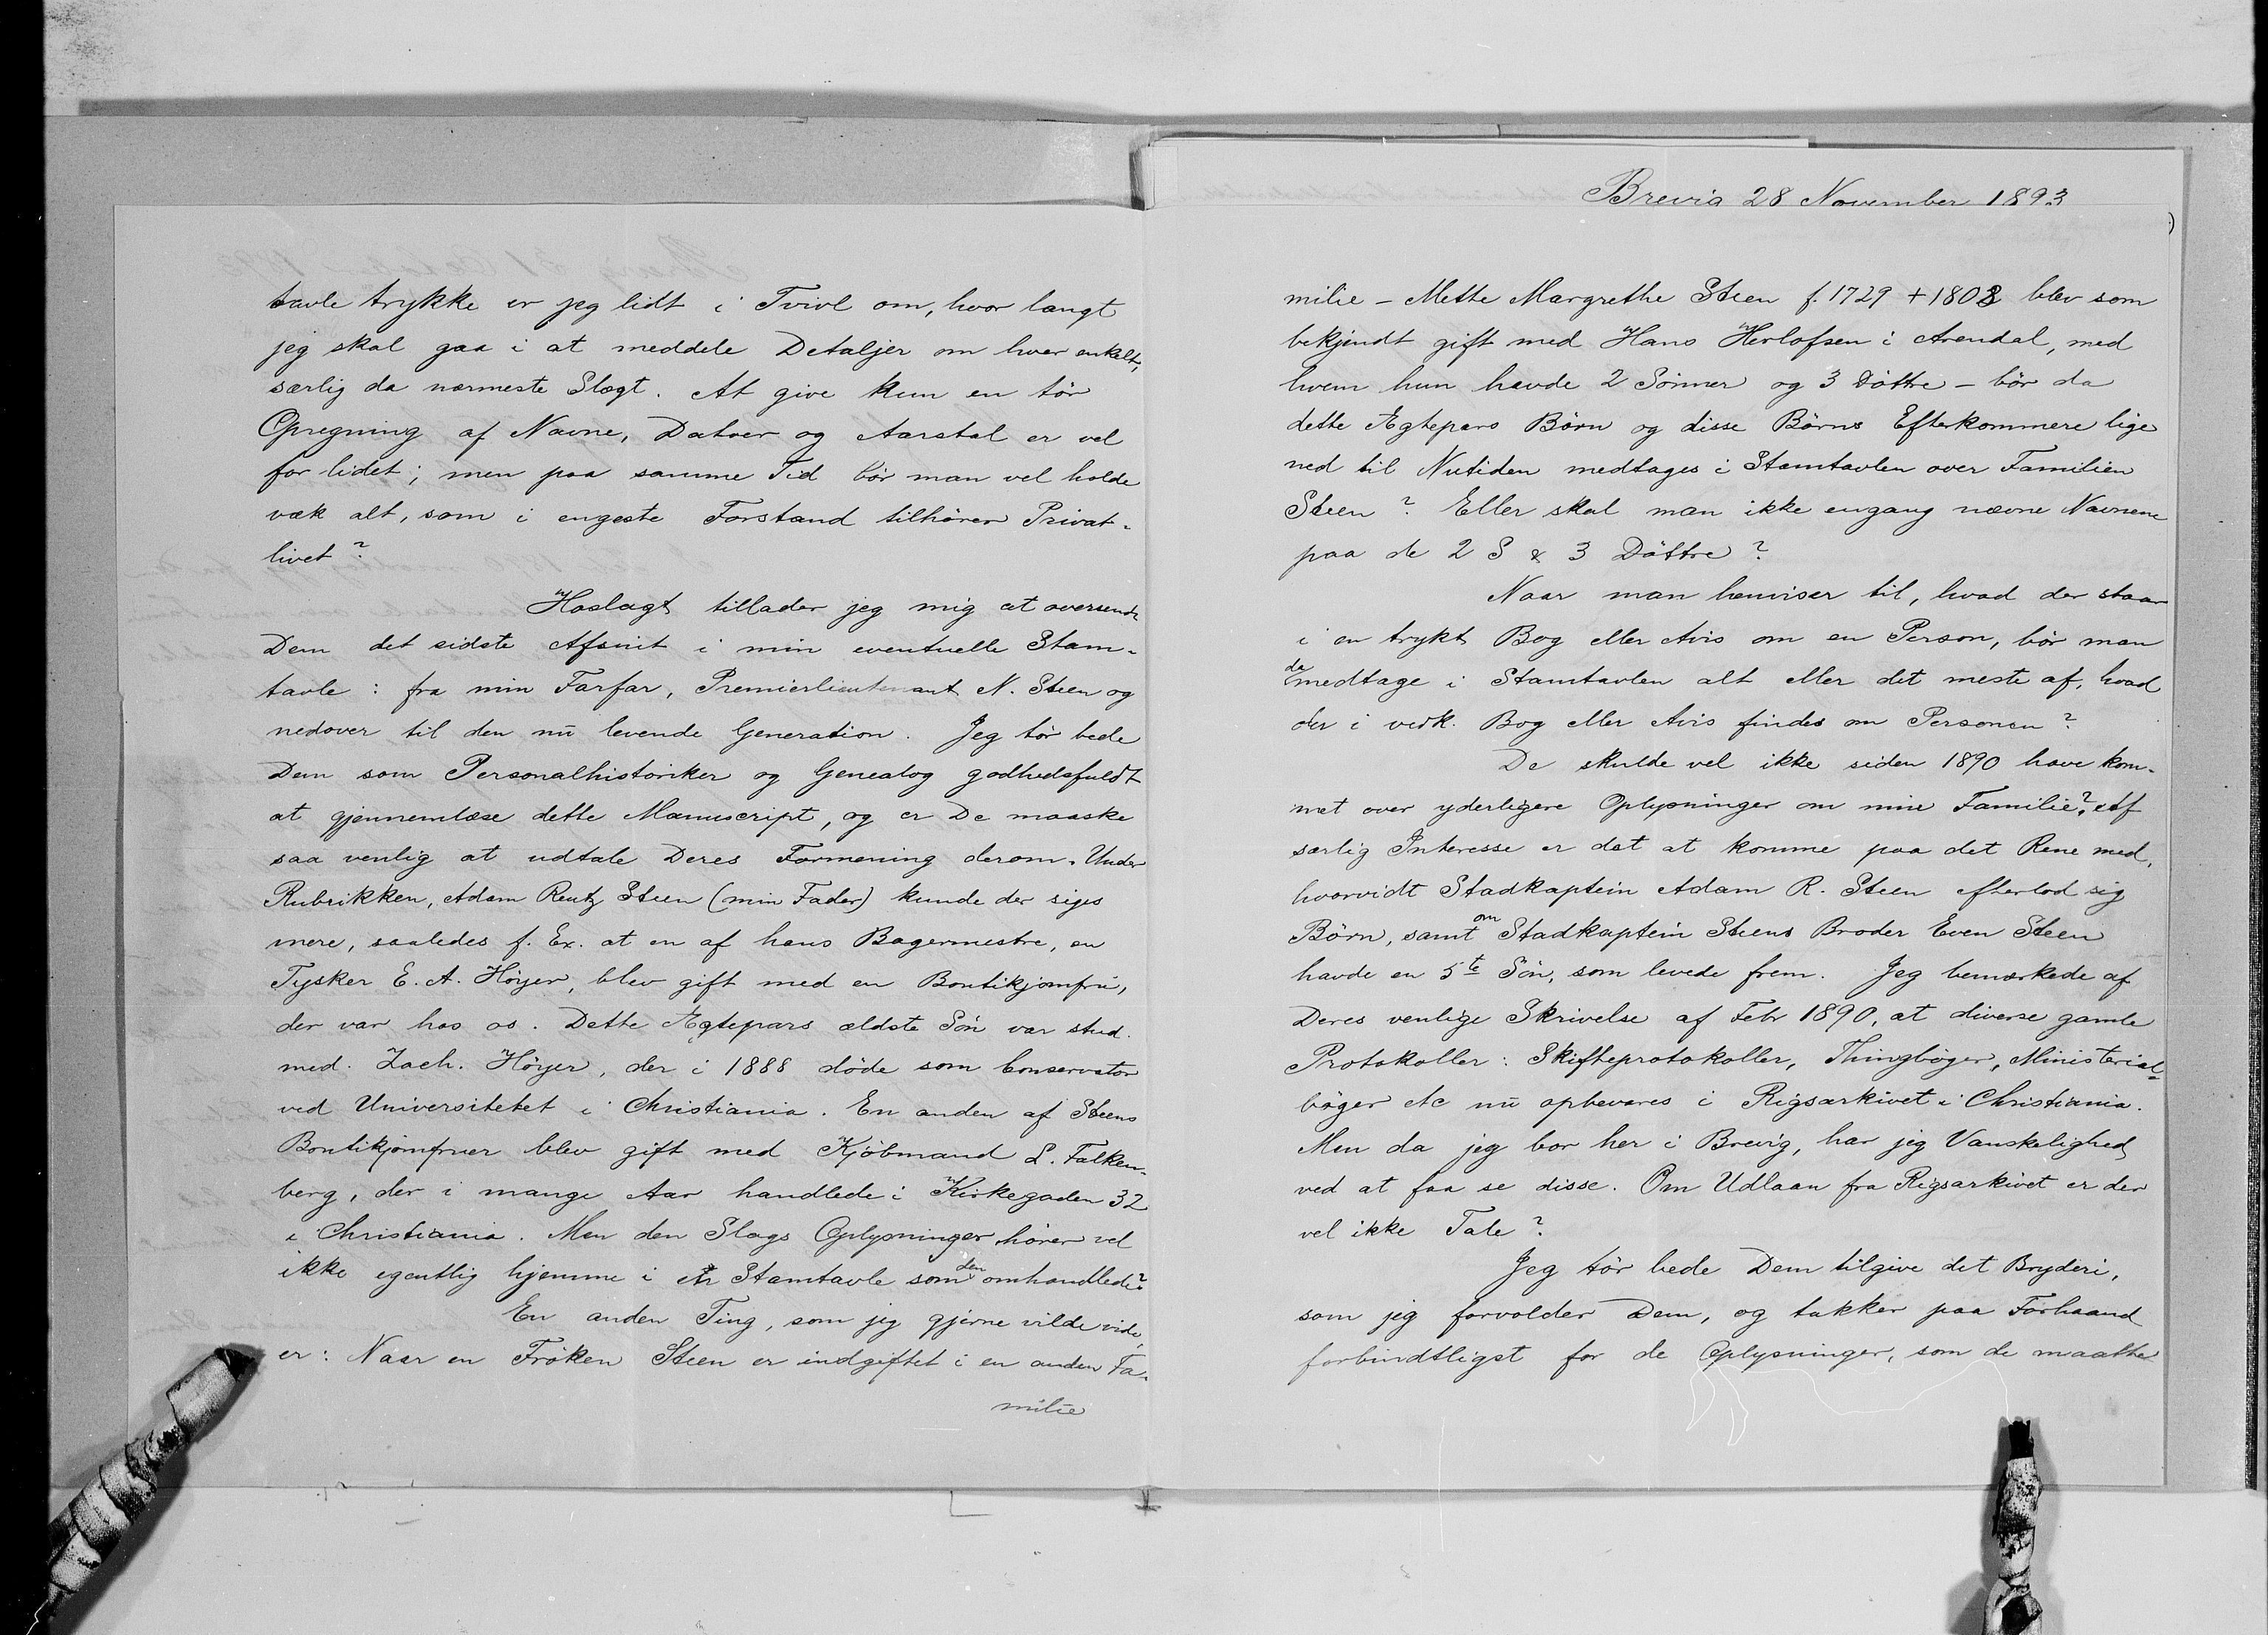 tavle trykke er jeg lidt i Tvivl om, hvor langt
jeg skal gaa i at meddele Detaljer om hver enkelt,
særlig da nærmeste Slægt. At give kun en tör
Opregning af Navne, Datoer og Aarstal er vel
for lidet; men paa samme Tid bör man vel holde
væk alt, som i engeste Forstand tilhörer Privat-
livet?
Hoslagt tillader jeg mig at oversende
Dem det sidste Afsnit i min eventuelle Stam-
tavle: fra min Farfar, Premierlieutenant N. Steen og
nedover til den nu levende Generation. Jeg tör bede
Dem som Personalhistoriker og Genealog godhedsfuldt
at gjennemlæse dette Manuscript, og er De maaske
saa venlig at udtale Deres Formening derom. Under
Rubrikken, Adam Reutz Steen (min Fader) kunde der siges
mere, saaledes f. Ex. at en af hans Bagermestre, en
Tysker E. A. Höyer, blev gift med en Boutikjomfru,
der var hos os. Dette Ægtepars ældste Sön var stud.
med. Zach. Höyer, der i 1888 döde som Conservator
ved Universitetet i Christiania. En anden af Steens
Boutikjomfruer blev gift med Kjöbmand L. Falken-
berg, der i mange Aar handlede i Kirkegaden 32
i Christiania. Men den Slags Oplysninger hörer vel
ikke egentlig hjemme i en Stamtavle som den omhandlede?
En anden Ting, som jeg gjerne vilde vide,
er: Naar en Fröken Steen er indgiftet i en anden Fa-
milie
Brevig 28 November 1893
milie – Mette Margrethe Steen f. 1729 + 1808 blev som
bekjendt gift med Hans Herlofsen i Arendal, med
hvem hun havde 2 Sönner og 3 Döttre – bör da
dette Ægtepars Börn og disse Börns Efterkommere lige
ned til Nutiden medtages i Stamtavlen over Familien
Steen? Eller skal man ikke engang nævne Navnene
paa de 2 S & 3 Döttre?
Naar man henviser til, hvad der staar
i en trykt Bog eller Avis om en Person, bör man
da medtage i Stamtavlen alt eller det meste af, hvad
der i vedk. Bog eller Avis findes om Personen?
De skulde vel ikke siden 1890 have kom-
met over yderligere Oplysninger om min Familie? Af
særlig Interesse er det at komme paa det Rene med,
hvorvidt Stadkaptein Adam R. Steen efterlod sig
Börn, samt om Stadkaptein Steens Broder Even Steen
havde en 5te Sön, som levede frem. Jeg bemærkede af
Deres venlige Skrivelse af Febr 1890, at diverse gamle
Protokoller: Skifteprotokoller, Thingböger, Ministerial-
böger etc nu opbevares i Rigsarkivet i Christiania.
Men da jeg bor her i Brevig, har jeg Vanskelighed
ved at faa se disse. Om Udlaan fra Rigsarkivet er der
vel ikke Tale?
Jeg tör bede Dem tilgive det Bryderi,
som jeg forvolder Dem, og takker paa Forhaand
forbindtligst for de Oplysninger, som de maatte